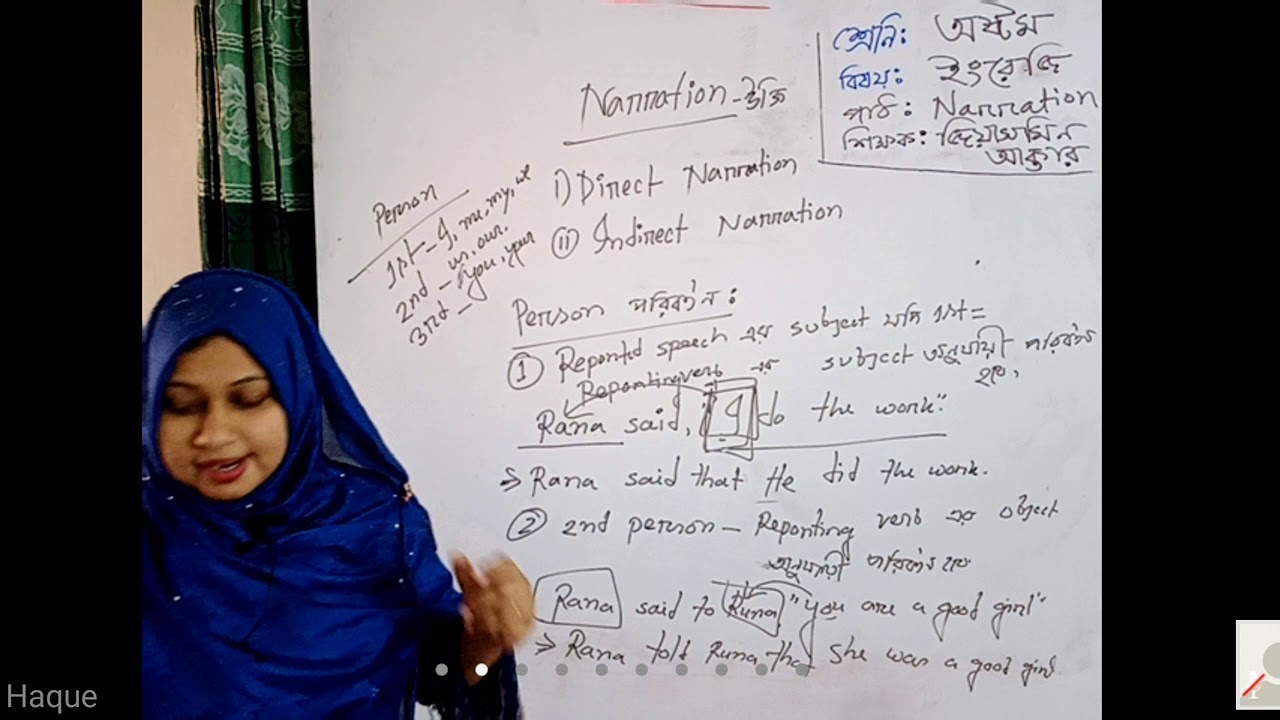 শ্রেনি: অষ্টম
বিষয়: ইংরেজি
পাঠ: Narration
শিক্ষক: জিয়াসমিন
আক্তার
Narration - উক্তি
i) Direct Narration
ii) Indirect Narration
Person
1st - I, me, my, we
us, our.
2nd - you, your
3rd -
Person পরিবর্তন:
1 Reported speech এর subject যদি 1st =
Reporting verb এর subject অনুযায়ী পরিবর্তন
হবে,
Rana said, "I do the work".
⇒ Rana said that He did the work.
2 2nd person - Reporting verb এর object
অনুযায়ী পরিবর্তন হয়
Rana said to Runa, "you are a good girl"
⇒ Rana told Runa that she was a good girl.
Haque